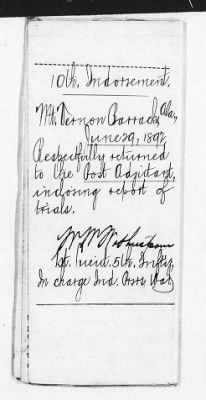 10th. Indorsement.
Mt. Vernon Barracks Ala,
June 29, 1892.
Respectfully returned
to the Post Adjutant,
inclosing report of
trials.
W W Wotherspoon
1st. Lieut. 5th. Inf'ty,
In charge Ind. Prsrs War